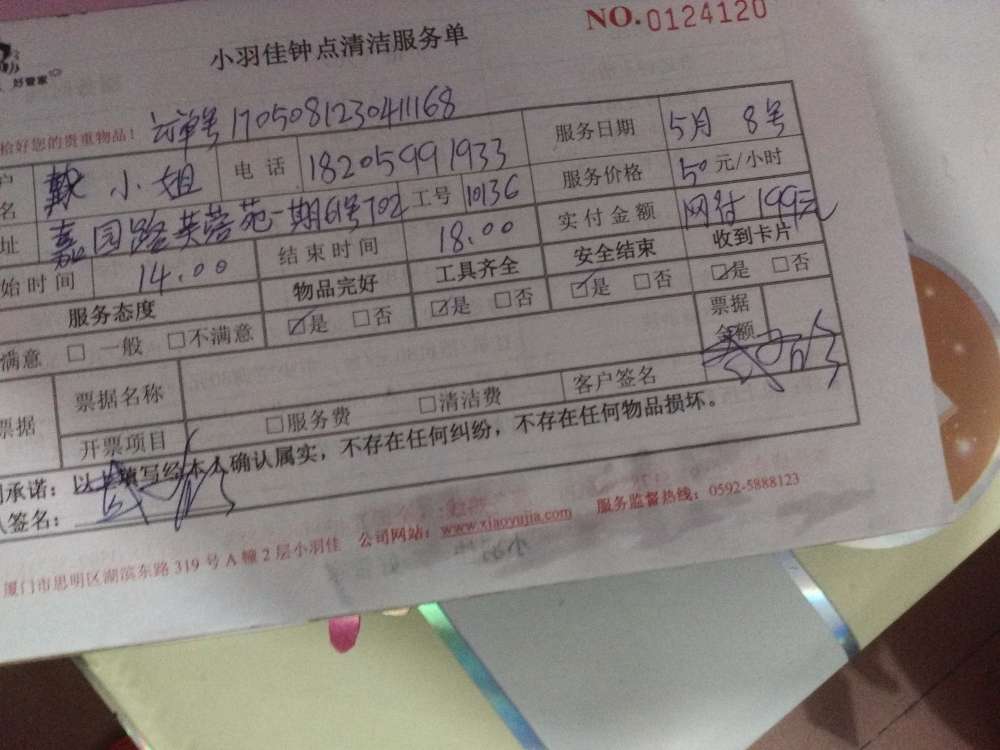 小羽佳钟点清洁服务单 NO.0124120
好管家
检好您的贵重物品! 订单号 170508123041168
户名 戴小姐 电话 18205991933 服务日期 5月8号
址 嘉园路芙蓉苑一期61号702 工号 10136 服务价格 50元/小时
始时间 14.00 结束时间 18.00 实付金额 网付199元
服务态度 物品完好 工具齐全 安全结束 收到卡片
满意 □一般 □不满意 ☑是 □否 ☑是 □否 ☑是 □否 ☑是 □否
票据 票据名称 票据金额
开票项目 □服务费 □清洁费 客户签名
承诺:以上填写经本人确认属实,不存在任何纠纷,不存在任何物品损坏。
签名:
厦门市思明区湖滨东路319号A幢2层小羽佳 公司网站:www.xiaoyujia.com 服务监督热线:0592-5888123